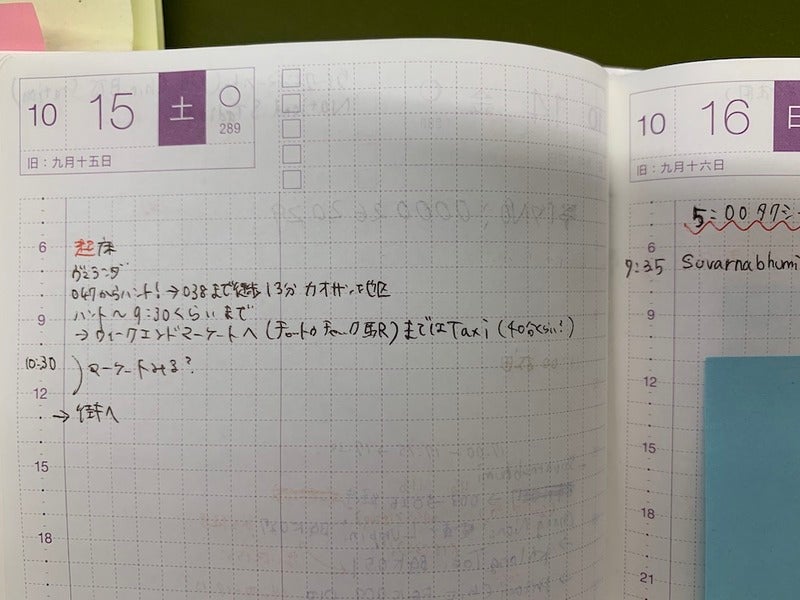 10 15 土 289
旧:九月十五日
6
起床
ヴェランダ
047からハント!→038まで徒歩13分 カオサン地区
ハント〜9:30くらいまで
9
→ウィークエンドマーケットへ(チャトゥチャック駅)まではTaxi(40分くらい!)
10:30 マーケットみる?
12
→街へ
15
18
10 16 日
旧:九月十六日
5:00 タクシ
6
9:35 Suvarnabhumi
9
12
15
18
21